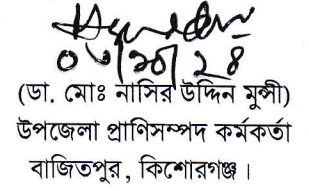 (ডা. মোঃ নাসির উদ্দিন মুন্সী)
উপজেলা প্রাণিসম্পদ কর্মকর্তা
বাজিতপুর, কিশোরগঞ্জ।